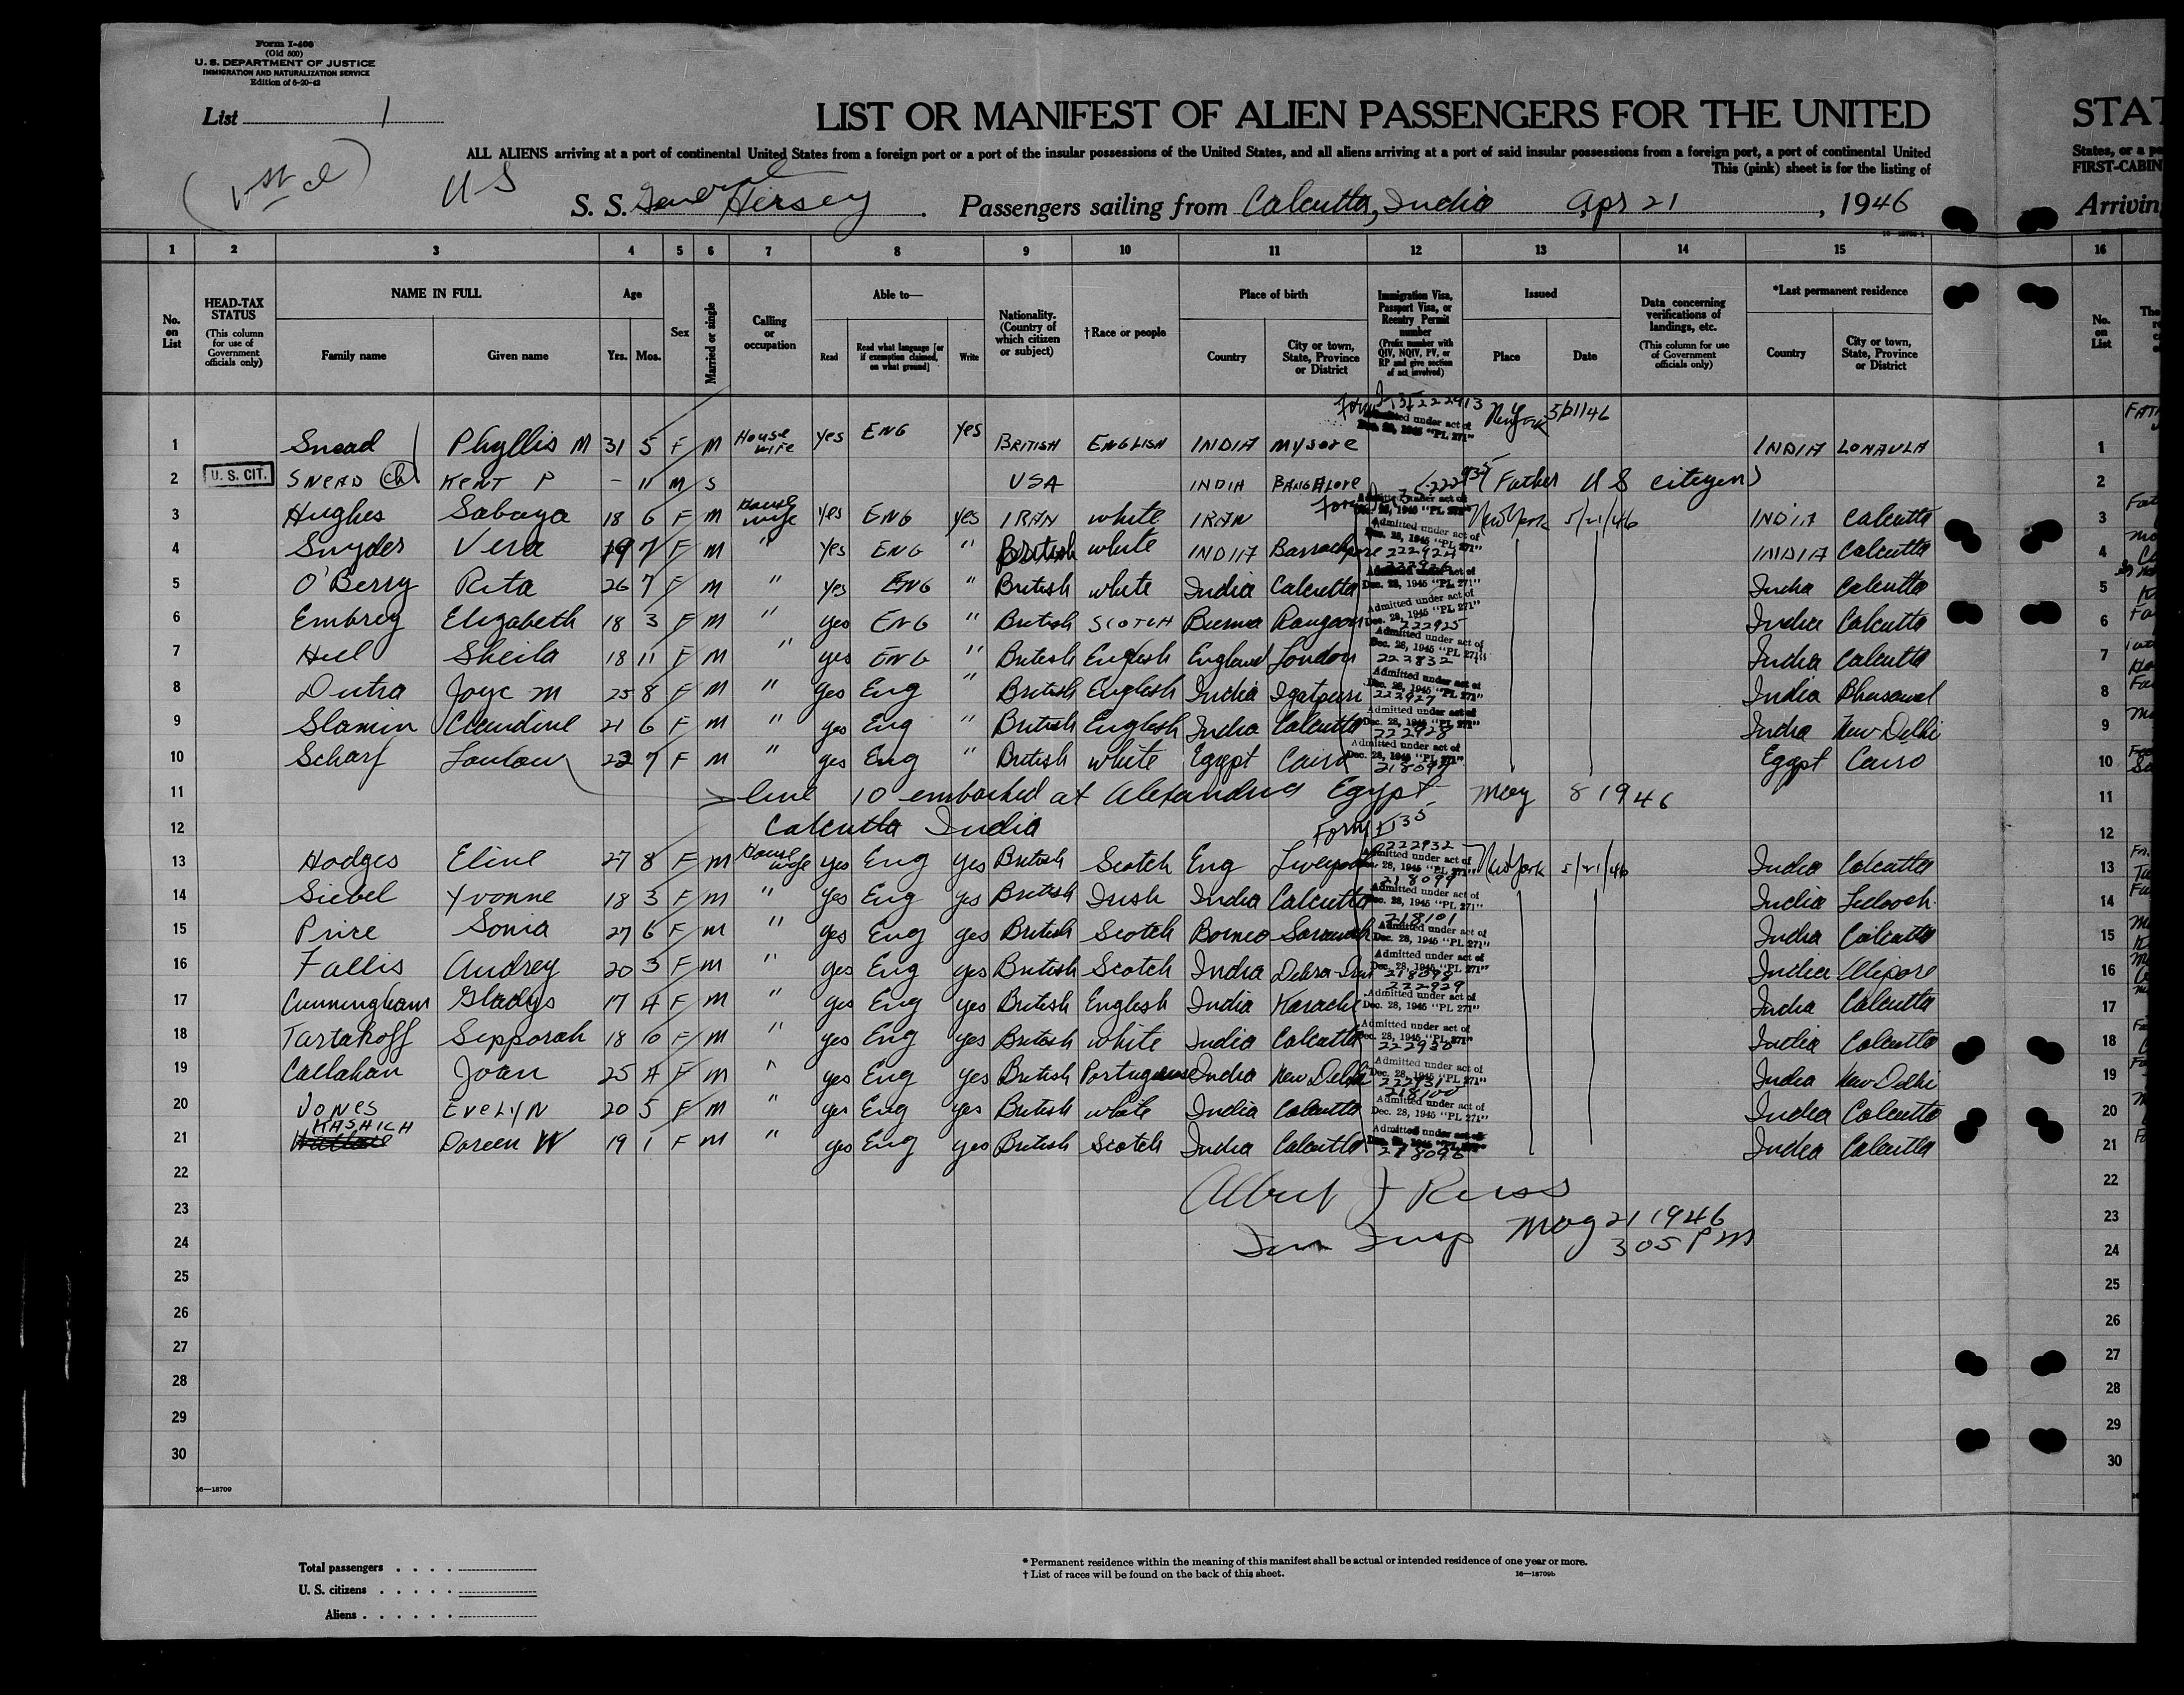 Form I-400
(Old 500)
U. S. DEPARTMENT OF JUSTICE
IMMIGRATION AND NATURALIZATION SERVICE
Edition of 6-20-42
List 1
LIST OR MANIFEST OF ALIEN PASSENGERS FOR THE UNITED STAT
ALL ALIENS arriving at a port of continental United States from a foreign port or a port of the insular possessions of the United States, and all aliens arriving at a port of said insular possessions from a foreign port, a port of continental United States, or a
This (pink) sheet is for the listing of FIRST-CABIN
(1st cl) US
S. S. General Hersey . Passengers sailing from Calcutta, India Apr 21 , 1946 Arrivin
1 2 3 4 5 6 7 8 9 10 11 12 13 14 15 16
No. on List
HEAD-TAX STATUS (This column for use of Government officials only)
NAME IN FULL Family name Given name
Age Yrs. Mos.
Sex
Married or single
Calling or occupation
Able to— Read Read what language [or if exemption claimed, on what ground] Write
Nationality. (Country of which citizen or subject)
†Race or people
Place of birth Country City or town, State, Province or District
Immigration Visa, Passport Visa, or Reentry Permit number (Prefix number with QIV, NQIV, PV, or RP and give section of act involved)
Issued Place Date
Data concerning verifications of landings, etc. (This column for use of Government officials only)
*Last permanent residence Country City or town, State, Province or District
No. on List
1 Snead Phyllis M 31 5 F M House wife yes ENG yes BRITISH ENGLISH INDIA Mysore 222913 Admitted under act of Dec. 28, 1945 "PL 271" New York 5/21/46 INDIA LONAVLA 1
2 U. S. CIT. SNEAD ch KENT P – 11 M S USA INDIA BANGALORE Father US citizen 2
3 Hughes Sabaya 18 6 F M House wife yes ENG yes IRAN white IRAN Form 222935 Admitted under act of Dec. 28, 1945 "PL 271" New York 5/21/46 INDIA Calcutta 3
4 Snyder Vera 19 7 F M " yes ENG " British white INDIA Barrackpore Admitted under act of Dec. 28, 1945 "PL 271" 222924 INDIA Calcutta 4
5 O'Berry Rita 26 7 F M " yes ENG " British white India Calcutta 222926 Admitted under act of Dec. 28, 1945 "PL 271" India Calcutta 5
6 Embrey Elizabeth 18 3 F M " yes ENG " British SCOTCH Burma Rangoon Admitted under act of Dec. 28, 1945 "PL 271" 222925 India Calcutta 6
7 Hill Sheila 18 11 F M " yes ENG " British English England London Admitted under act of Dec. 28, 1945 "PL 271" 222832 India Calcutta 7
8 Dutra Joyc M 25 8 F M " yes Eng " British English India Igatpuri Admitted under act of Dec. 28, 1945 "PL 271" 222927 India Bhusawal 8
9 Slamin Claudine 21 6 F M " yes Eng " British English India Calcutta Admitted under act of Dec. 28, 1945 "PL 271" 222928 India New Delhi 9
10 Scharf 23 7 F M " yes Eng " British white Egypt Cairo Admitted under act of Dec. 28, 1945 "PL 271" Egypt Cairo 10
11 line 10 embarked at Alexandria Egypt May 8 1946 11
12 Calcutta India Form I 135 12
13 Hodges Eline 27 8 F M House wife yes Eng yes British Scotch Eng Liverpool 222932 Admitted under act of Dec. 28, 1945 "PL 271" New York 5/21/46 India Calcutta 13
14 Siebel Yvonne 18 3 F M " yes Eng yes British Irish India Calcutta 218099 Admitted under act of Dec. 28, 1945 "PL 271" India 14
15 Price Sonia 27 6 F M " yes Eng yes British Scotch Borneo Sarawak 218101 Admitted under act of Dec. 28, 1945 "PL 271" India Calcutta 15
16 Fallis Audrey 20 3 F M " yes Eng yes British Scotch India Dehra-Dun Admitted under act of Dec. 28, 1945 "PL 271" 218098 India Alipore 16
17 Cunningham Gladys 17 4 F M " yes Eng yes British English India Karachi 222929 Admitted under act of Dec. 28, 1945 "PL 271" India Calcutta 17
18 Tartakoff Sepporah 18 10 F M " yes Eng yes British white India Calcutta Admitted under act of Dec. 28, 1945 "PL 271" 222930 India Calcutta 18
19 Callahan Joan 25 4 F M " yes Eng yes British Portuguese India New Delhi Admitted under act of Dec. 28, 1945 "PL 271" 222931 India New Delhi 19
20 JONES EVELYN 20 5 F M " yes Eng yes British white India Calcutta 218100 Admitted under act of Dec. 28, 1945 "PL 271" India Calcutta 20
21 KASHICH Doreen W 19 1 F M " yes Eng yes British Scotch India Calcutta Admitted under act of Dec. 28, 1945 "PL 271" 218096 India Calcutta 21
22 22
23 May 21 1946 23
24 Imm Insp 3 05 PM 24
25 25
26 26
27 27
28 28
29 29
30 30
16—18709
Total passengers
U. S. citizens
Aliens
* Permanent residence within the meaning of this manifest shall be actual or intended residence of one year or more.
† List of races will be found on the back of this sheet.
16—18709b